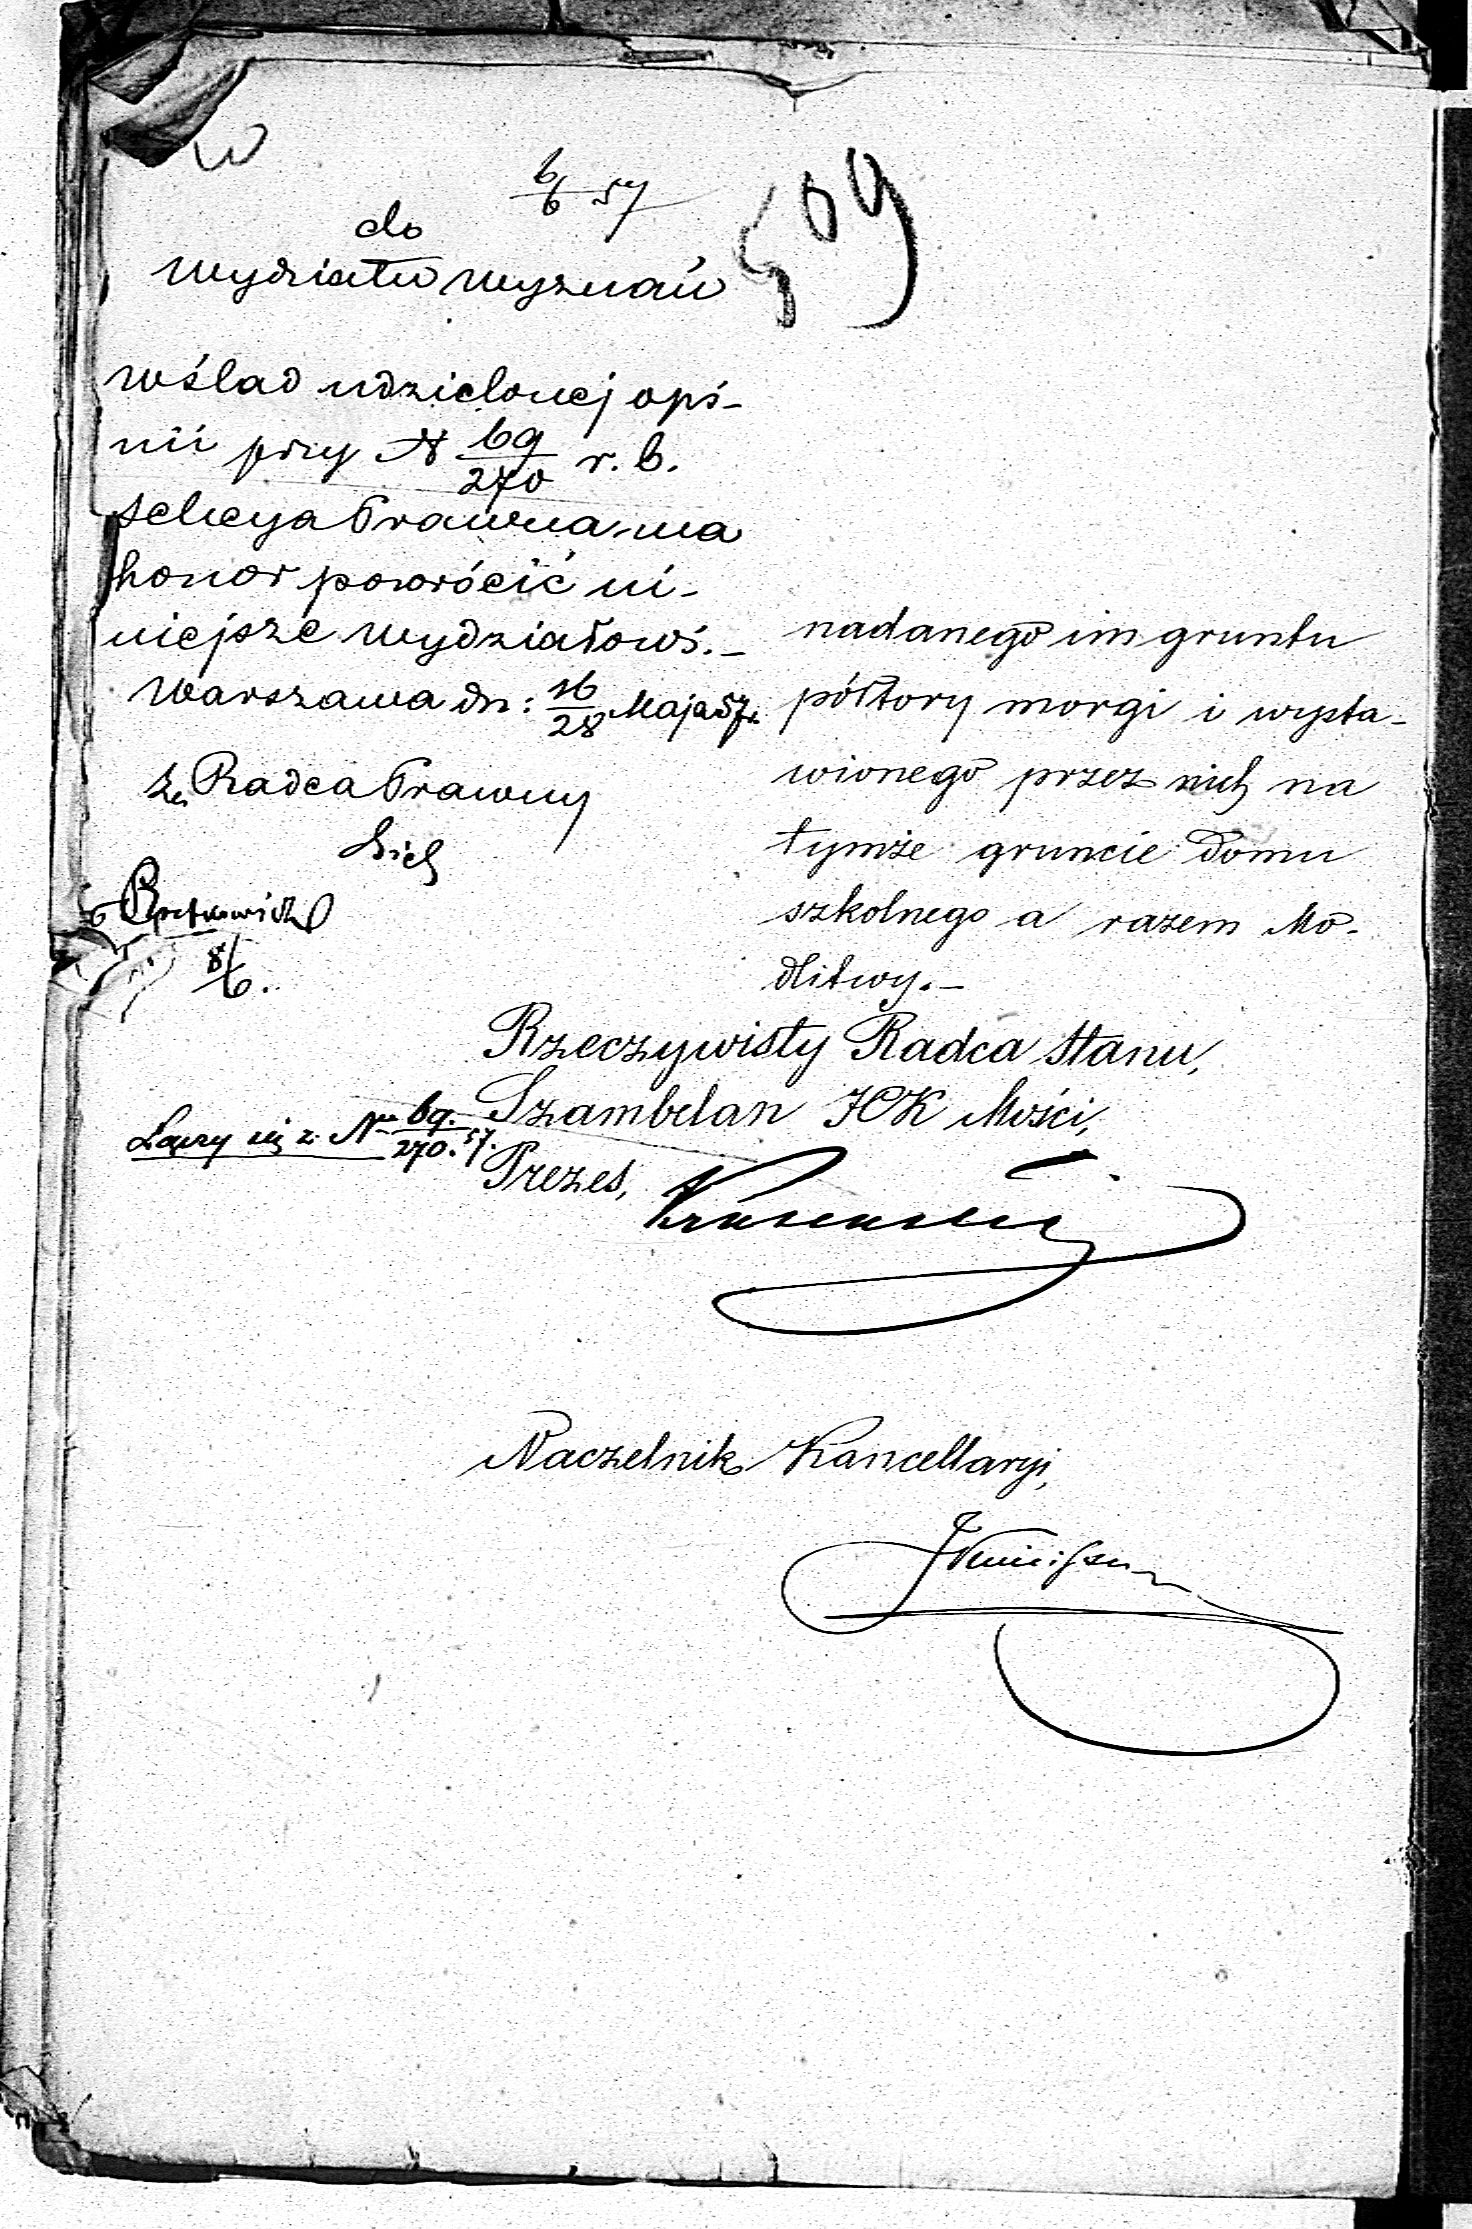 W
6/6 57
509
do
Wydziału Wyznań
Wślad udzielonej opi-
nii przy N 69/270 r. b.
Sekcya Prawna ma
honor powrócić ni-
niejsze Wydziałowi.-
Warszawa dn: 16/28 Maja 57.
za Radca Prawny
8/6.
Łączy się z Nrem 69./270. 57.
nadanego im gruntu
półtory morgi i wysta-
wionego przez nich na
tymże gruncie domu
szkolnego a razem Mo-
dlitwy.-
Rzeczywisty Radca Stanu,
Szambelan JCK Mości,
Prezes,
Naczelnik Kancellaryi,